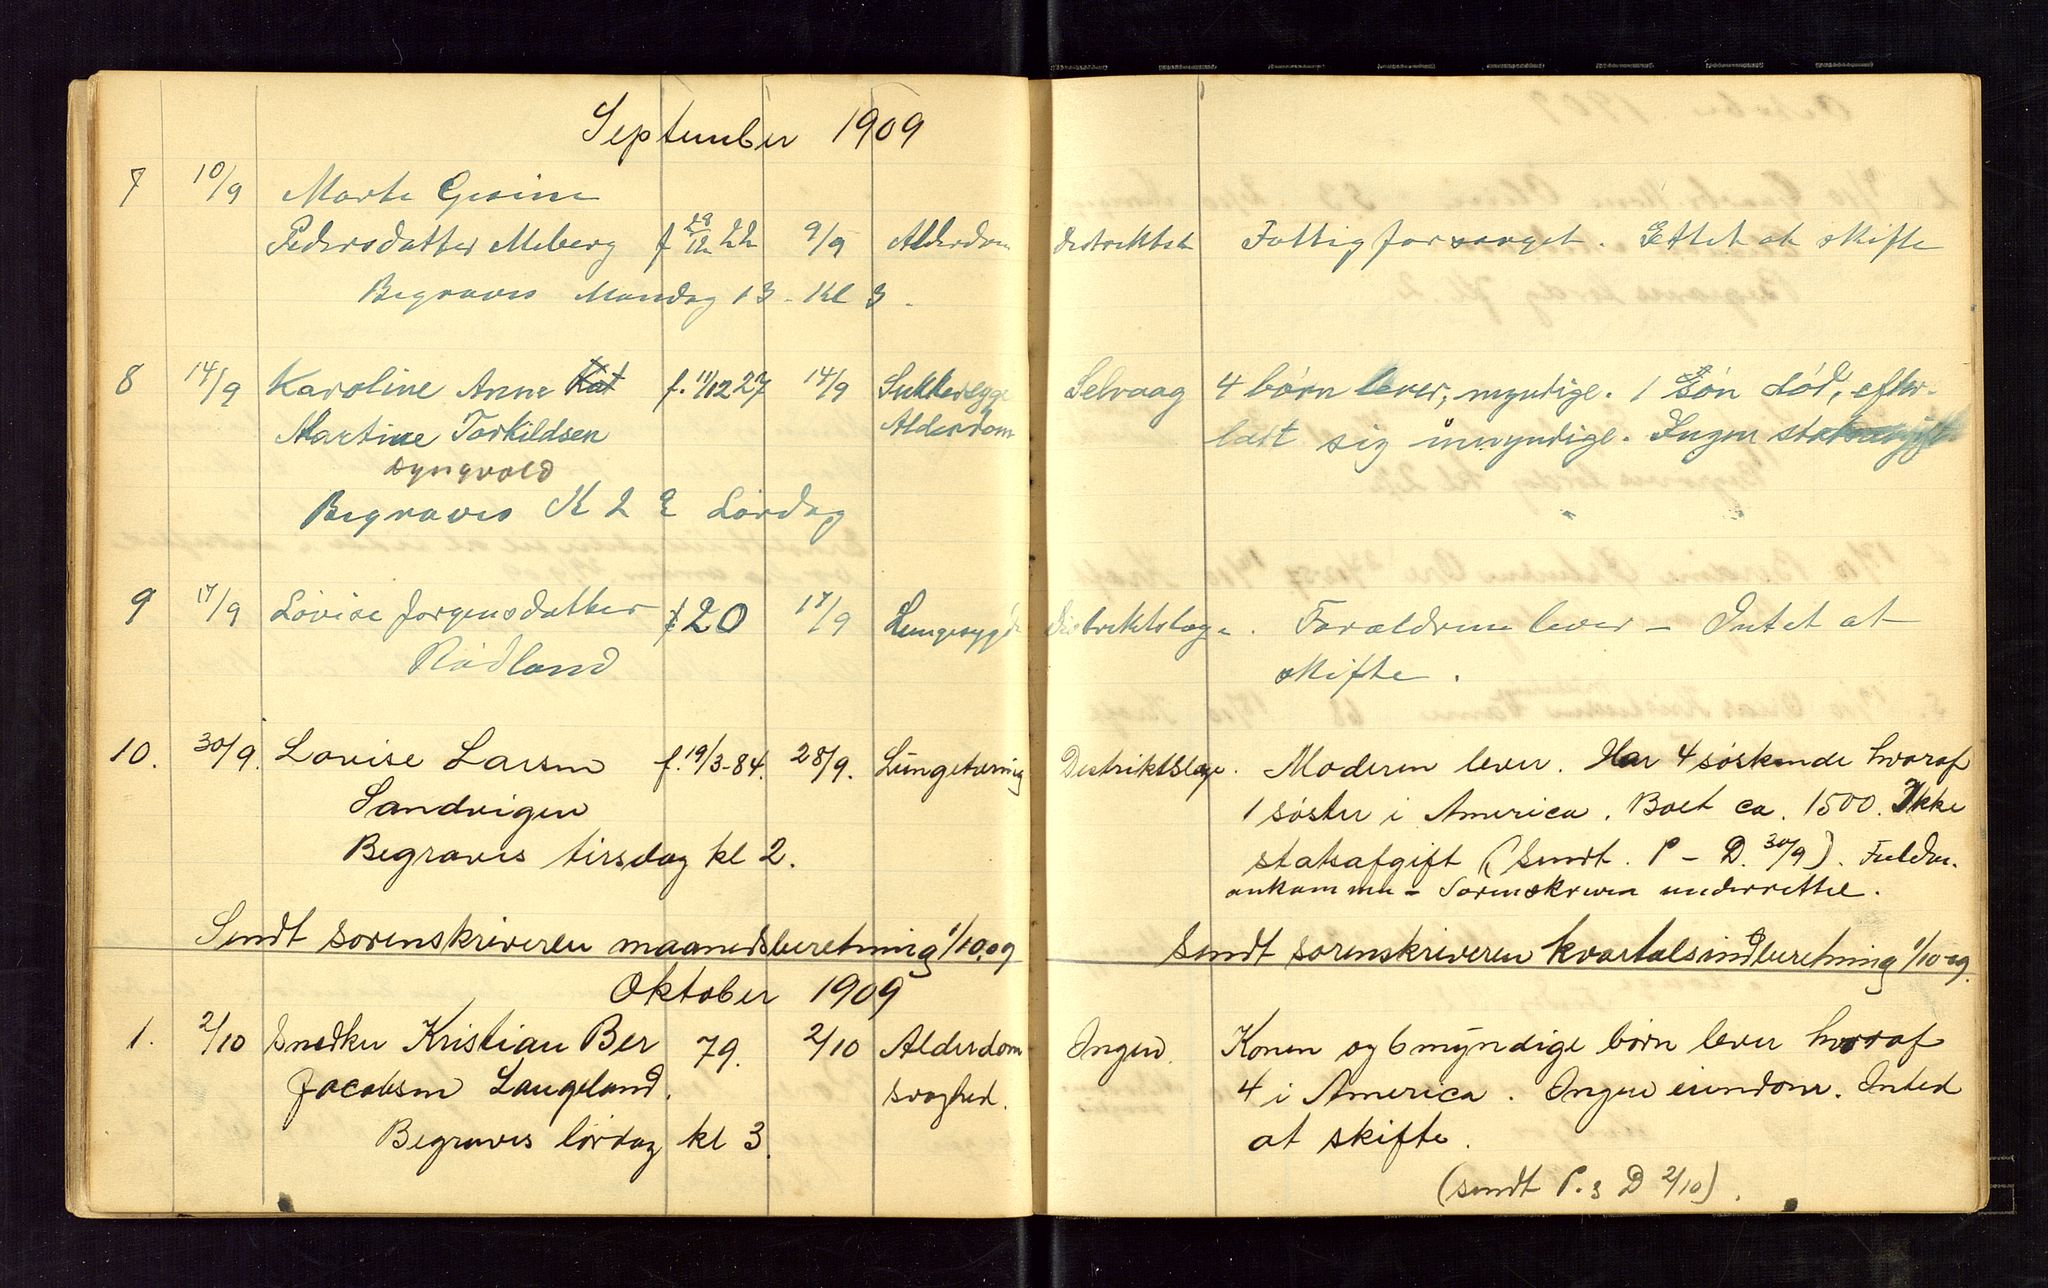 September 1909
7 10/9 Marte Gesine
Pedersdatter Meberg f 28/12 22 9/9 Alderdom
Begraves Mandag 13 - Kl 3.
8 14/9 Karoline Anne Kat f. 11/12 27 14/9 Sukkersyge
Martine Torkildsen Alderdom
Begraves Kl 2 Lørdag
9 17/9 Lovise Jørgensdatter f 20 17/9 Lungesyge
Rødland
10. 30/9. Lovise Larsen f. 19/3-84. 28/9. Lungetæring
Sandvigen
Begraves tirsdag kl 2.
Sendt sorenskriveren maanedsberetning 1/10.09
Oktober 1909
1. 2/10 Snedker Kristian Ber 79. 2/10 Alderdom
Jacobsen Langeland. svaghed.
Begraves lørdag kl 3.
Fattigforsørget. Intet at skifte
Selvaag 4 børn lever, myndige. 1 søn død, efter-
ladt sig umyndige. Ingen statsavgift
Distriktslæge. Forældrene lever - Intet at
skifte.
Distriktslæge. Moderen lever. Har 4 søskende hvoraf
1 søster i America. Boet ca. 1500. Ikke
statsafgift (Sendt. P - D. 30/9).
ankommer - Sorenskriveren underrettet.
Sendt sorenskriveren kvartalsindberetning 1/10-09.
Ingen. Konen og 6 myndige børn lever hvoraf
4 i America. Ingen eiendom. Inted
at skifte.
(sendt P. & D 2/10).